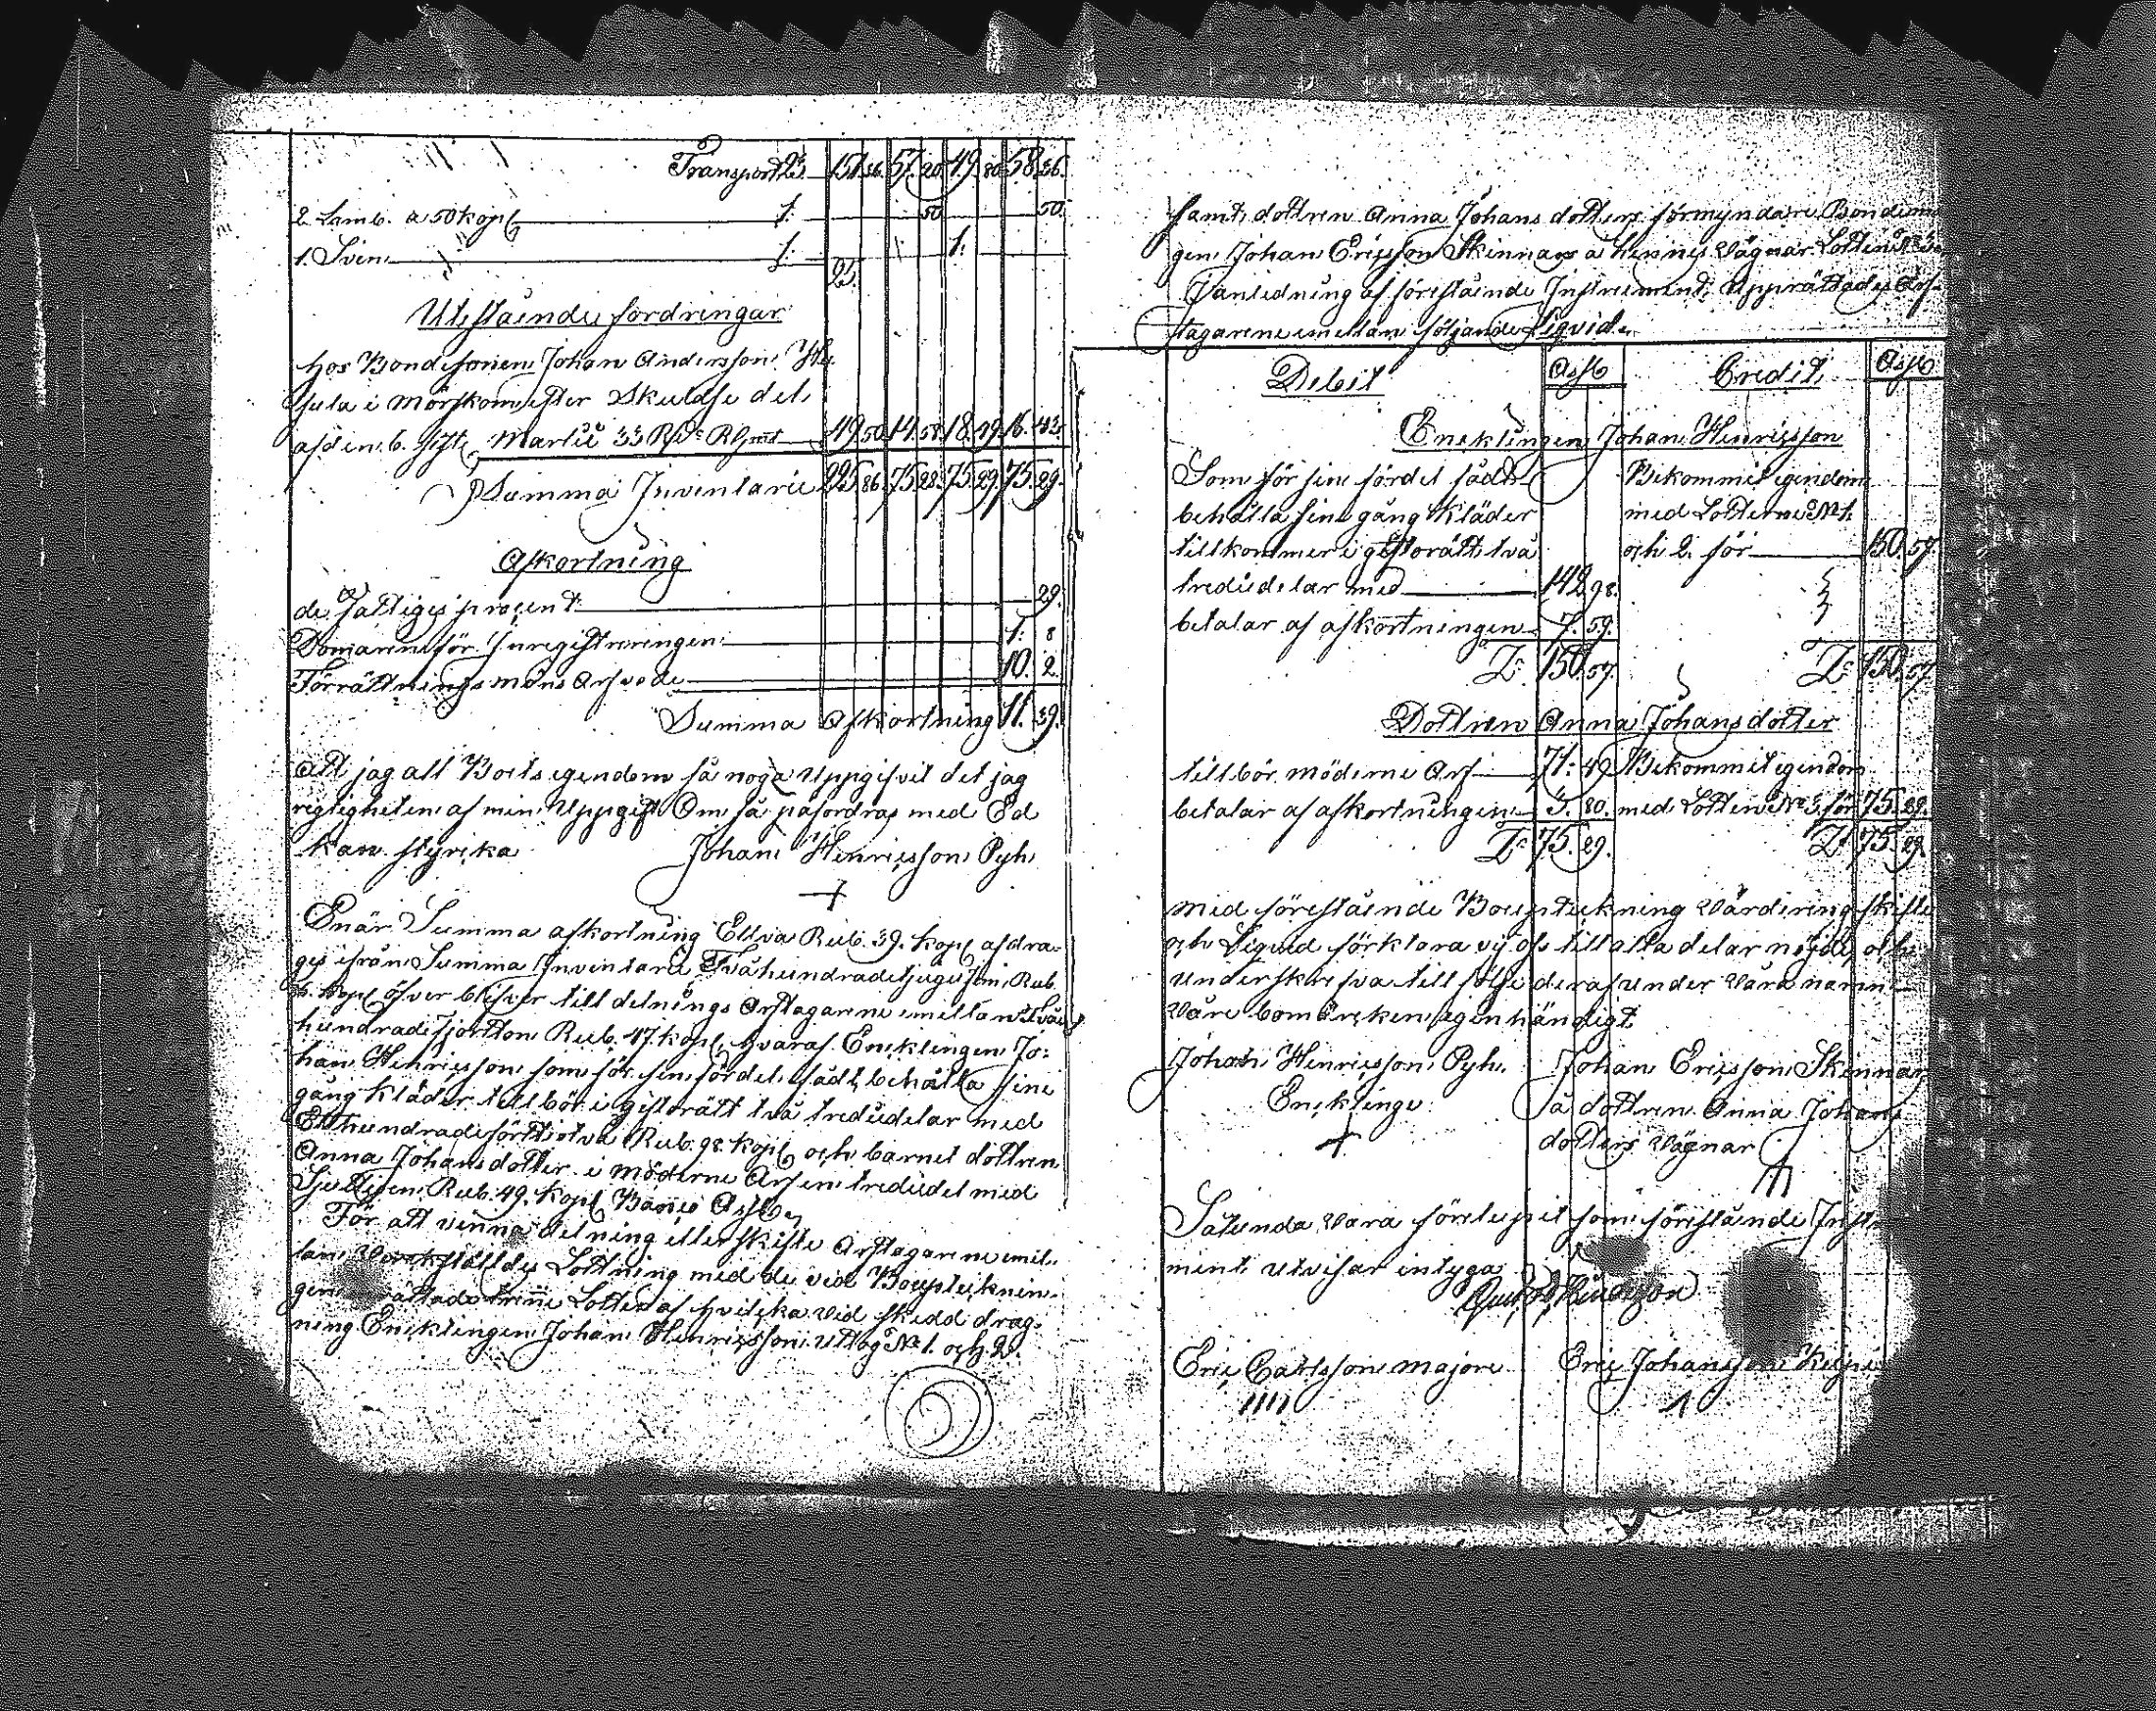 Transport 23. 151 36. 57. 20. 49. 80. 58. 36.
2. Lamb. a 50 kop. 1. 50 50.
1. Svin 1. 1.
Utestående fordringar
hos Bondesonen Johan Andersson
i Mörskom efter Skuldse del
af den 6. Martii 33 49 50. 14. 58. 18. 49. 16. 43.
Summa Inventarie 225 86. 75. 28. 75. 29. 75. 29.
Afkortning
de fattiges procent 29.
Domaren för Inregistreringen 1. 8
Förrättningsmäns Arfvode 10. 2.
Summa Afkortning 11. 39.
Att jag all Boets egendom så noga uppgifvit det jag
rigtigheten af min Uppgift Om så påfordras med Ed
kan styrcka Johan Henricsson Pyh.
Enär Summa afkortning Ellva Rub. 39. kop. afdra-
ges ifrån Summa Inventarie Tvåhundradetjugufem Rub.
kop. öfver blifver till delnings Arftagarne emellan Två
hundrade fjortton Rub. 47. kop. hvaraf Encklingen Jo-
han Henricsson som för sin fördel fådt behålla sine
gång kläder tillbör i giftorätt två tredudelar med
Etthundrade förtiotva Rub. 98. kop. och barnet dottren
Anna Johansdotter i möderne Arf en tredudel med
Sjuttijen Rub. 49. kop. Banco Ass.
För att vinna delning eller skifte Arftagarne emel-
lan Verckställdes Lottning med de vid Bouptecknin-
gen trenne Lotter af hvilcka vid skedd drag-
ning Encklingen Johan Henricsson uttog No 1. och 2.
samt dottren Anna Johans dotters förmyndare
gen Johan Ericsson Skinnars å hennes vägnar Lotten No 3
I anledning af förestående Instrument, Upprättades Arf-
tagarne emellan följande Liqvid.
Debit Ass. Credit Ass.
Encklingen Johan Henricsson
Som för sin fördel fådt Bekommit egendom
behålla sine gång kläder med Lotterne No 1.
tillkommer i giftorätt två och 2. för 150. 57.
tredudelar med 142. 98.
betalar af afkortningen 7. 59.
150. 57. 150. 57.
Dottren Anna Johansdotter
tillbör möderne Arf 71. 49. Bekommit egendom
betalar af afkortningen 3. 80. med Lotten No 3. för 75. 29.
75. 29. 75. 29.
Med förestående Bouptekning Värdering skifte
och Liqvid förklara vij oss till alla delar nöjde och
underskrifva till följe deraf under våra namn
Våre bomärcken egenhändigt
Johan Henricsson Pyh. Johan Ericsson Skinnar
Encklinge å dottren Anna Johans
dotters vägnar
Sålunda vara förelupit som förestående Instru
ment utvisar intyga
Eric Carlsson majors Eric Johansson